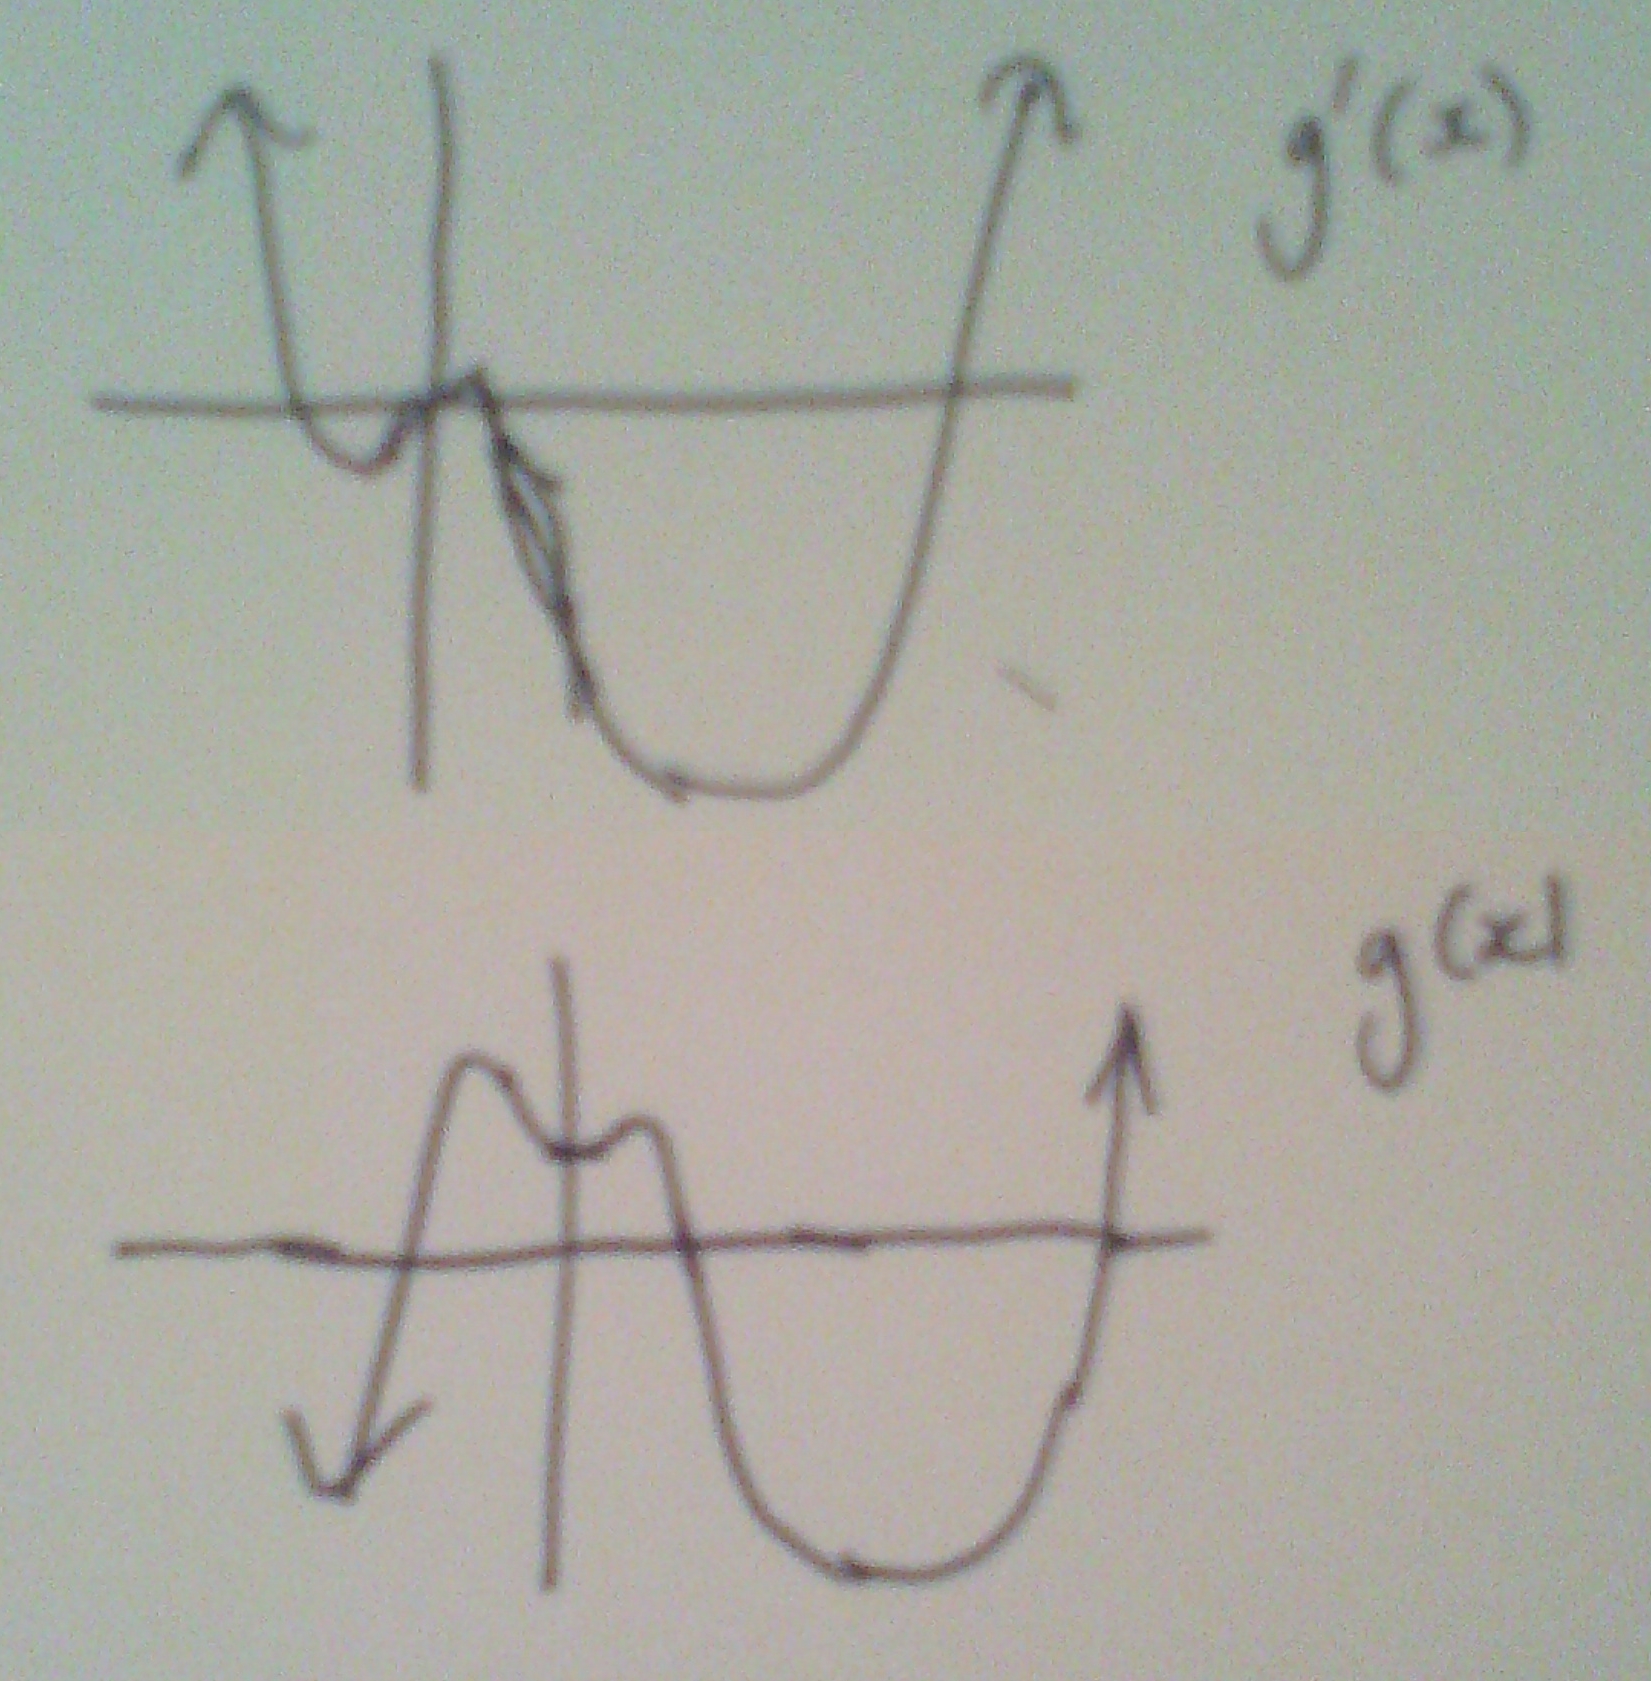 g'(x)
g(x)